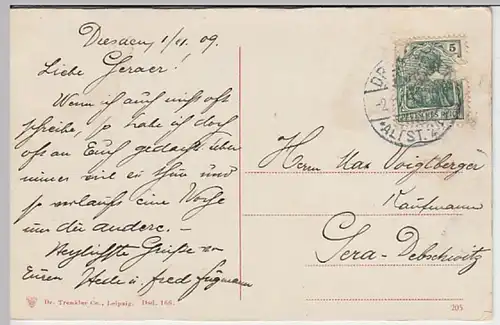 Dresden, 1/11 09.
Liebe Geraer!
Wenn ich auch nicht oft
schreibe, so habe ich doch
oft an Euch gedacht, aber
immer viel zu thun und
so verläuft eine Woche
um die andere. –
Herzlichste Grüße von
Euren Hede u. Fred
Herrn Max Voigtberger
Kaufmann
Gera-Debschwitz
5
DEUTSCHES REICH
DR
ALTST.
Dr. Trenkler Co., Leipzig. Dsd. 168.
205